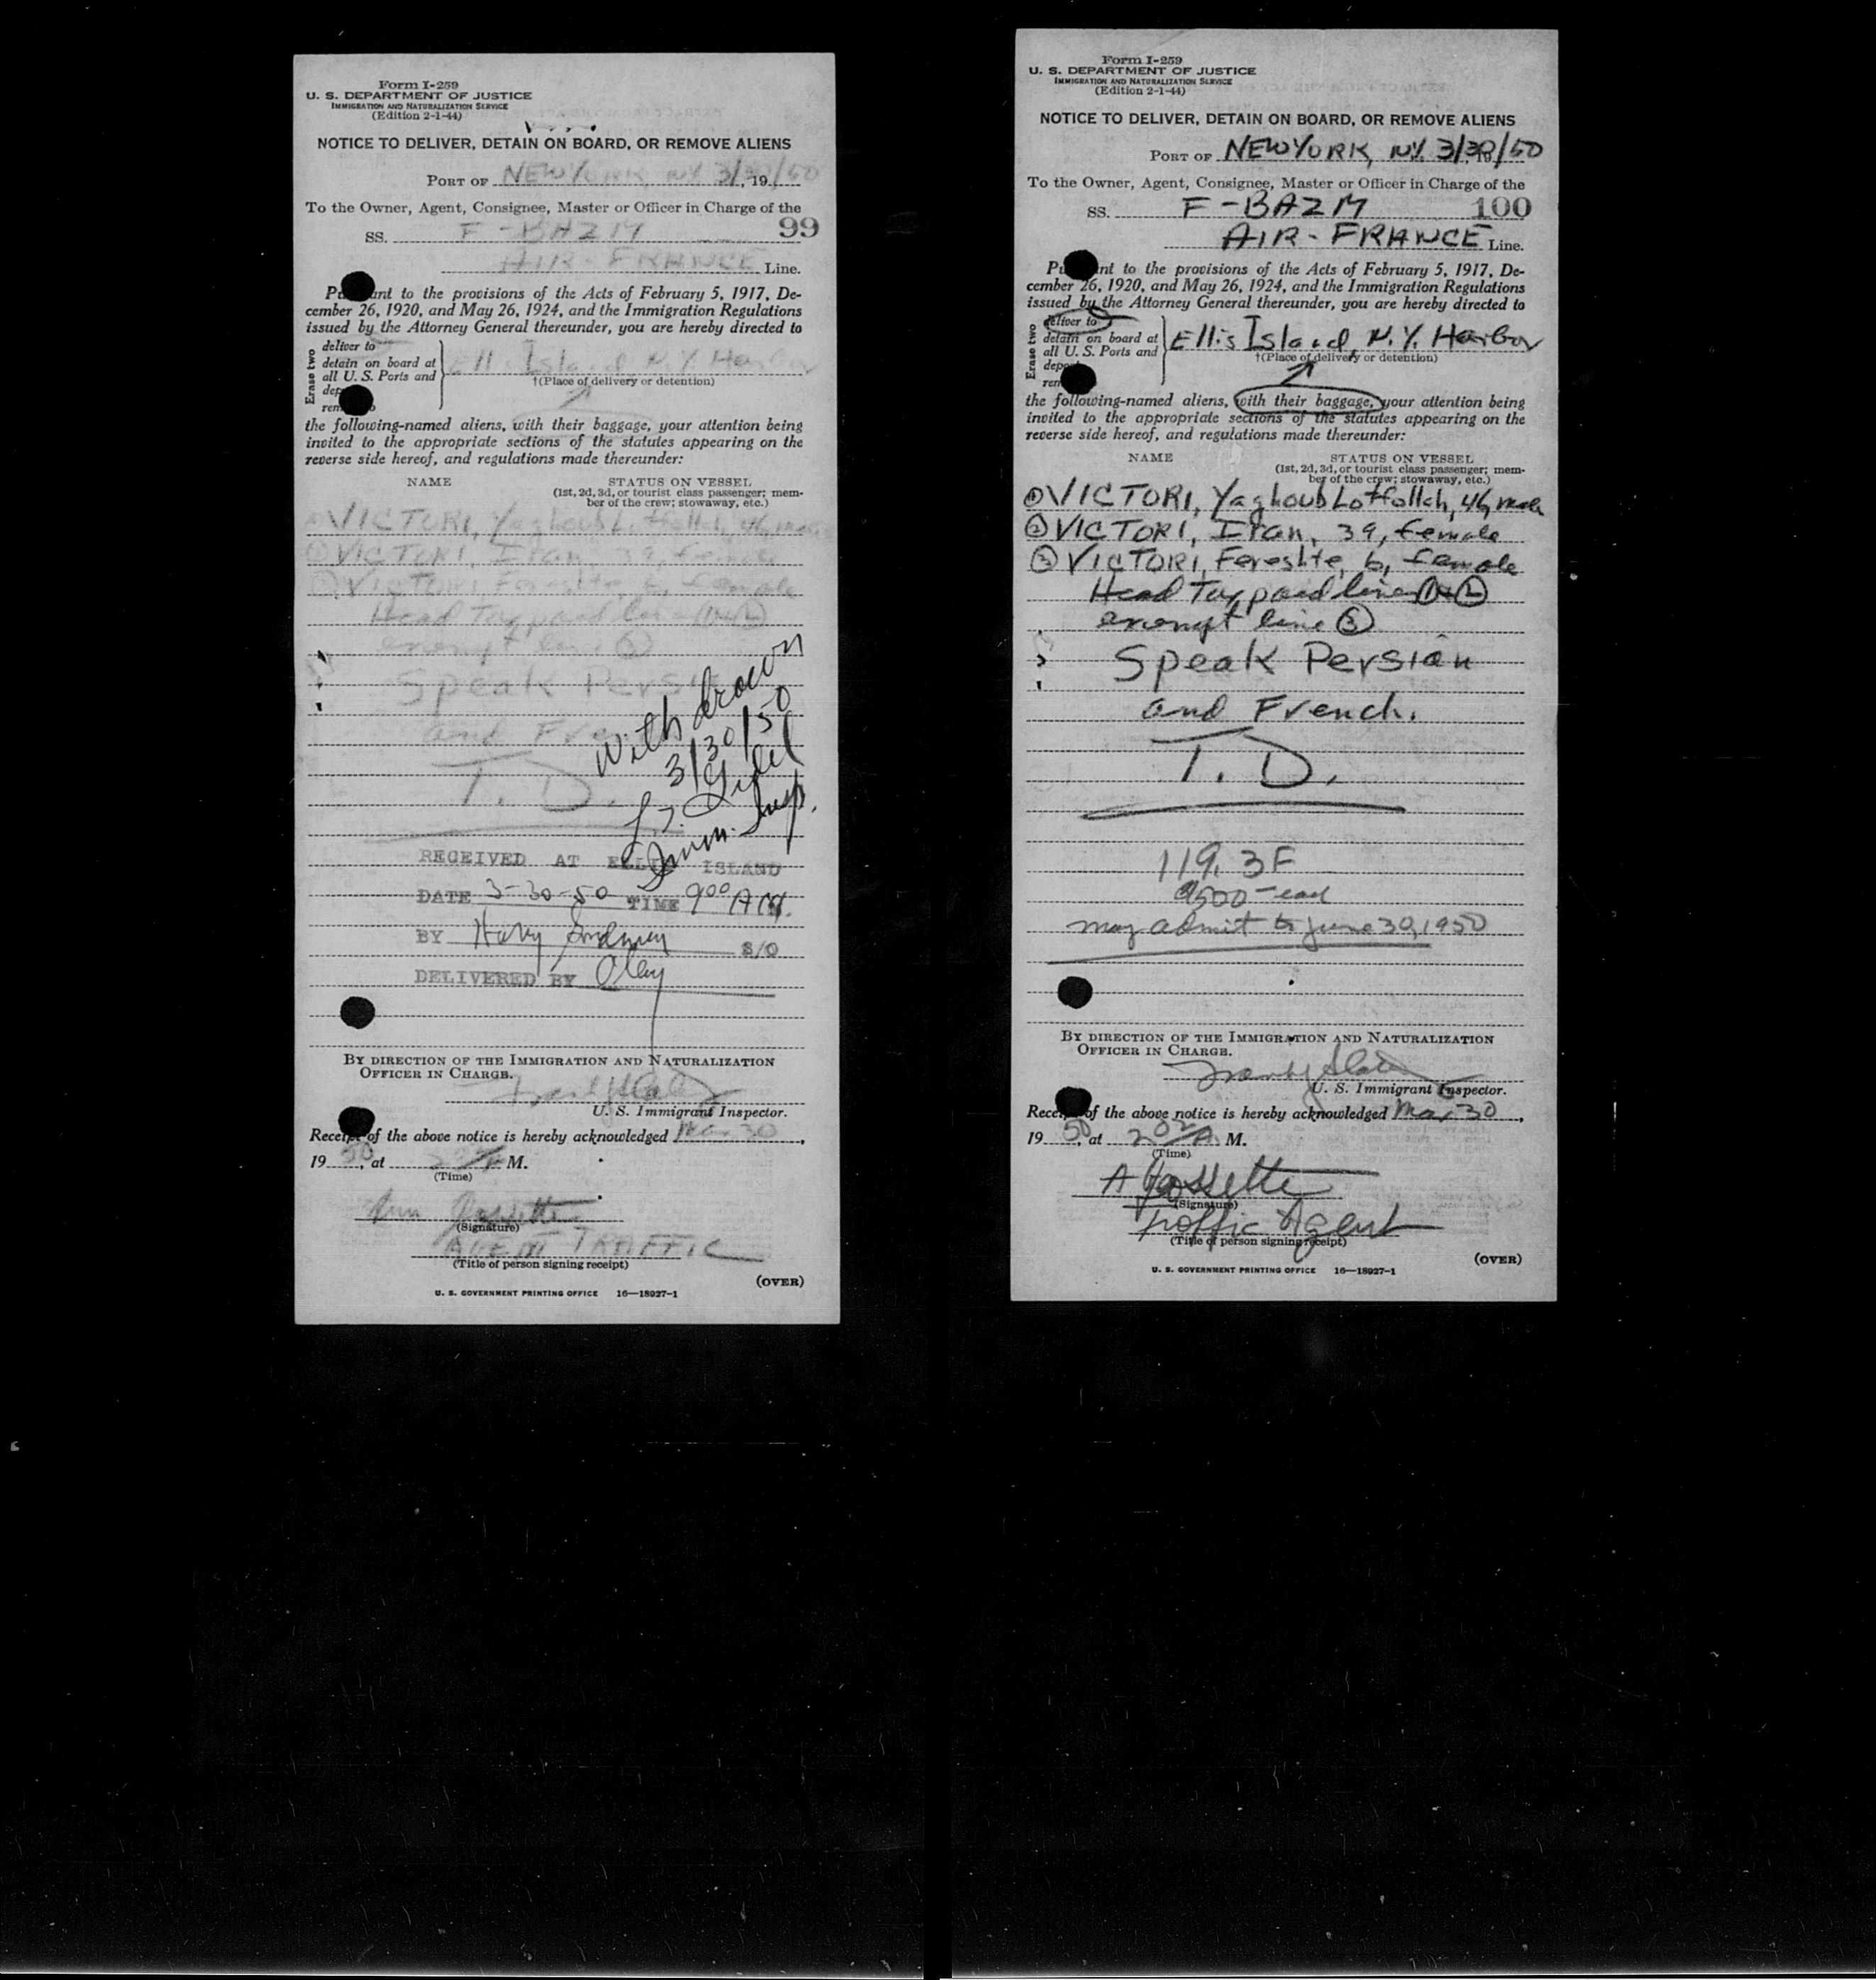 Form I-259
U. S. DEPARTMENT OF JUSTICE
IMMIGRATION AND NATURALIZATION SERVICE
(Edition 2-1-44)
NOTICE TO DELIVER, DETAIN ON BOARD, OR REMOVE ALIENS
PORT OF NEW YORK, NY. 3/30/50, 19
To the Owner, Agent, Consignee, Master or Officer in Charge of the
99
SS. F-BAZM
AIR-FRANCE Line.
Pu ant to the provisions of the Acts of February 5, 1917, De-
cember 26, 1920, and May 26, 1924, and the Immigration Regulations
issued by the Attorney General thereunder, you are hereby directed to
Erase two
deliver to
detain on board at
all U. S. Ports and
dep
rem o
Ellis Island, N.Y. Harbor
†(Place of delivery or detention)
the following-named aliens, with their baggage, your attention being
invited to the appropriate sections of the statutes appearing on the
reverse side hereof, and regulations made thereunder:
NAME STATUS ON VESSEL
(1st, 2d, 3d, or tourist class passenger; mem-
ber of the crew; stowaway, etc.)
① VICTORI, Yaghoub Lotfollah, 46, male
② VICTORI, Iran, 39, female
③ VICTORI, Fereshte, 6, female
Head Tax paid line ① + ②
exempt line ③
Speak Persian
and French
T. D.
Withdrawn
3/30/50
Imm. Insp.
RECEIVED AT ELLIS ISLAND
DATE 3-30-50 TIME 9 00 AM.
BY Harry S/O
DELIVERED BY
BY DIRECTION OF THE IMMIGRATION AND NATURALIZATION
OFFICER IN CHARGE.
U. S. Immigrant Inspector.
Receipt of the above notice is hereby acknowledged Mar 30,
19 50, at M.
(Time)
(Signature)
AGENT TRAFFIC
(Title of person signing receipt)
(OVER)
U. S. GOVERNMENT PRINTING OFFICE 16—18927-1
Form I-259
U. S. DEPARTMENT OF JUSTICE
IMMIGRATION AND NATURALIZATION SERVICE
(Edition 2-1-44)
NOTICE TO DELIVER, DETAIN ON BOARD, OR REMOVE ALIENS
PORT OF NEW YORK, NY. 3/30/50, 19
To the Owner, Agent, Consignee, Master or Officer in Charge of the
SS. F-BAZM 100
AIR-FRANCE Line.
Pu ant to the provisions of the Acts of February 5, 1917, De-
cember 26, 1920, and May 26, 1924, and the Immigration Regulations
issued by the Attorney General thereunder, you are hereby directed to
Erase two
deliver to
detain on board at
all U. S. Ports and
depo
rem
Ellis Island, N.Y. Harbor
†(Place of delivery or detention)
the following-named aliens, with their baggage, your attention being
invited to the appropriate sections of the statutes appearing on the
reverse side hereof, and regulations made thereunder:
NAME STATUS ON VESSEL
(1st, 2d, 3d, or tourist class passenger; mem-
ber of the crew; stowaway, etc.)
① VICTORI, Yaghoub Lotfollah, 46, male
② VICTORI, Iran, 39, female
③ VICTORI, Fereshte, 6, female
Head Tax paid line ① + ②
exempt line ③
Speak Persian
and French.
T. D.
119.3F
500 - each
may admit to June 30, 1950
BY DIRECTION OF THE IMMIGRATION AND NATURALIZATION
OFFICER IN CHARGE.
U. S. Immigrant Inspector.
Receipt of the above notice is hereby acknowledged Mar 30,
19 50, at 2 02 A. M.
(Time)
(Signature)
Traffic Agent
(Title of person signing receipt)
(OVER)
U. S. GOVERNMENT PRINTING OFFICE 16—18927-1